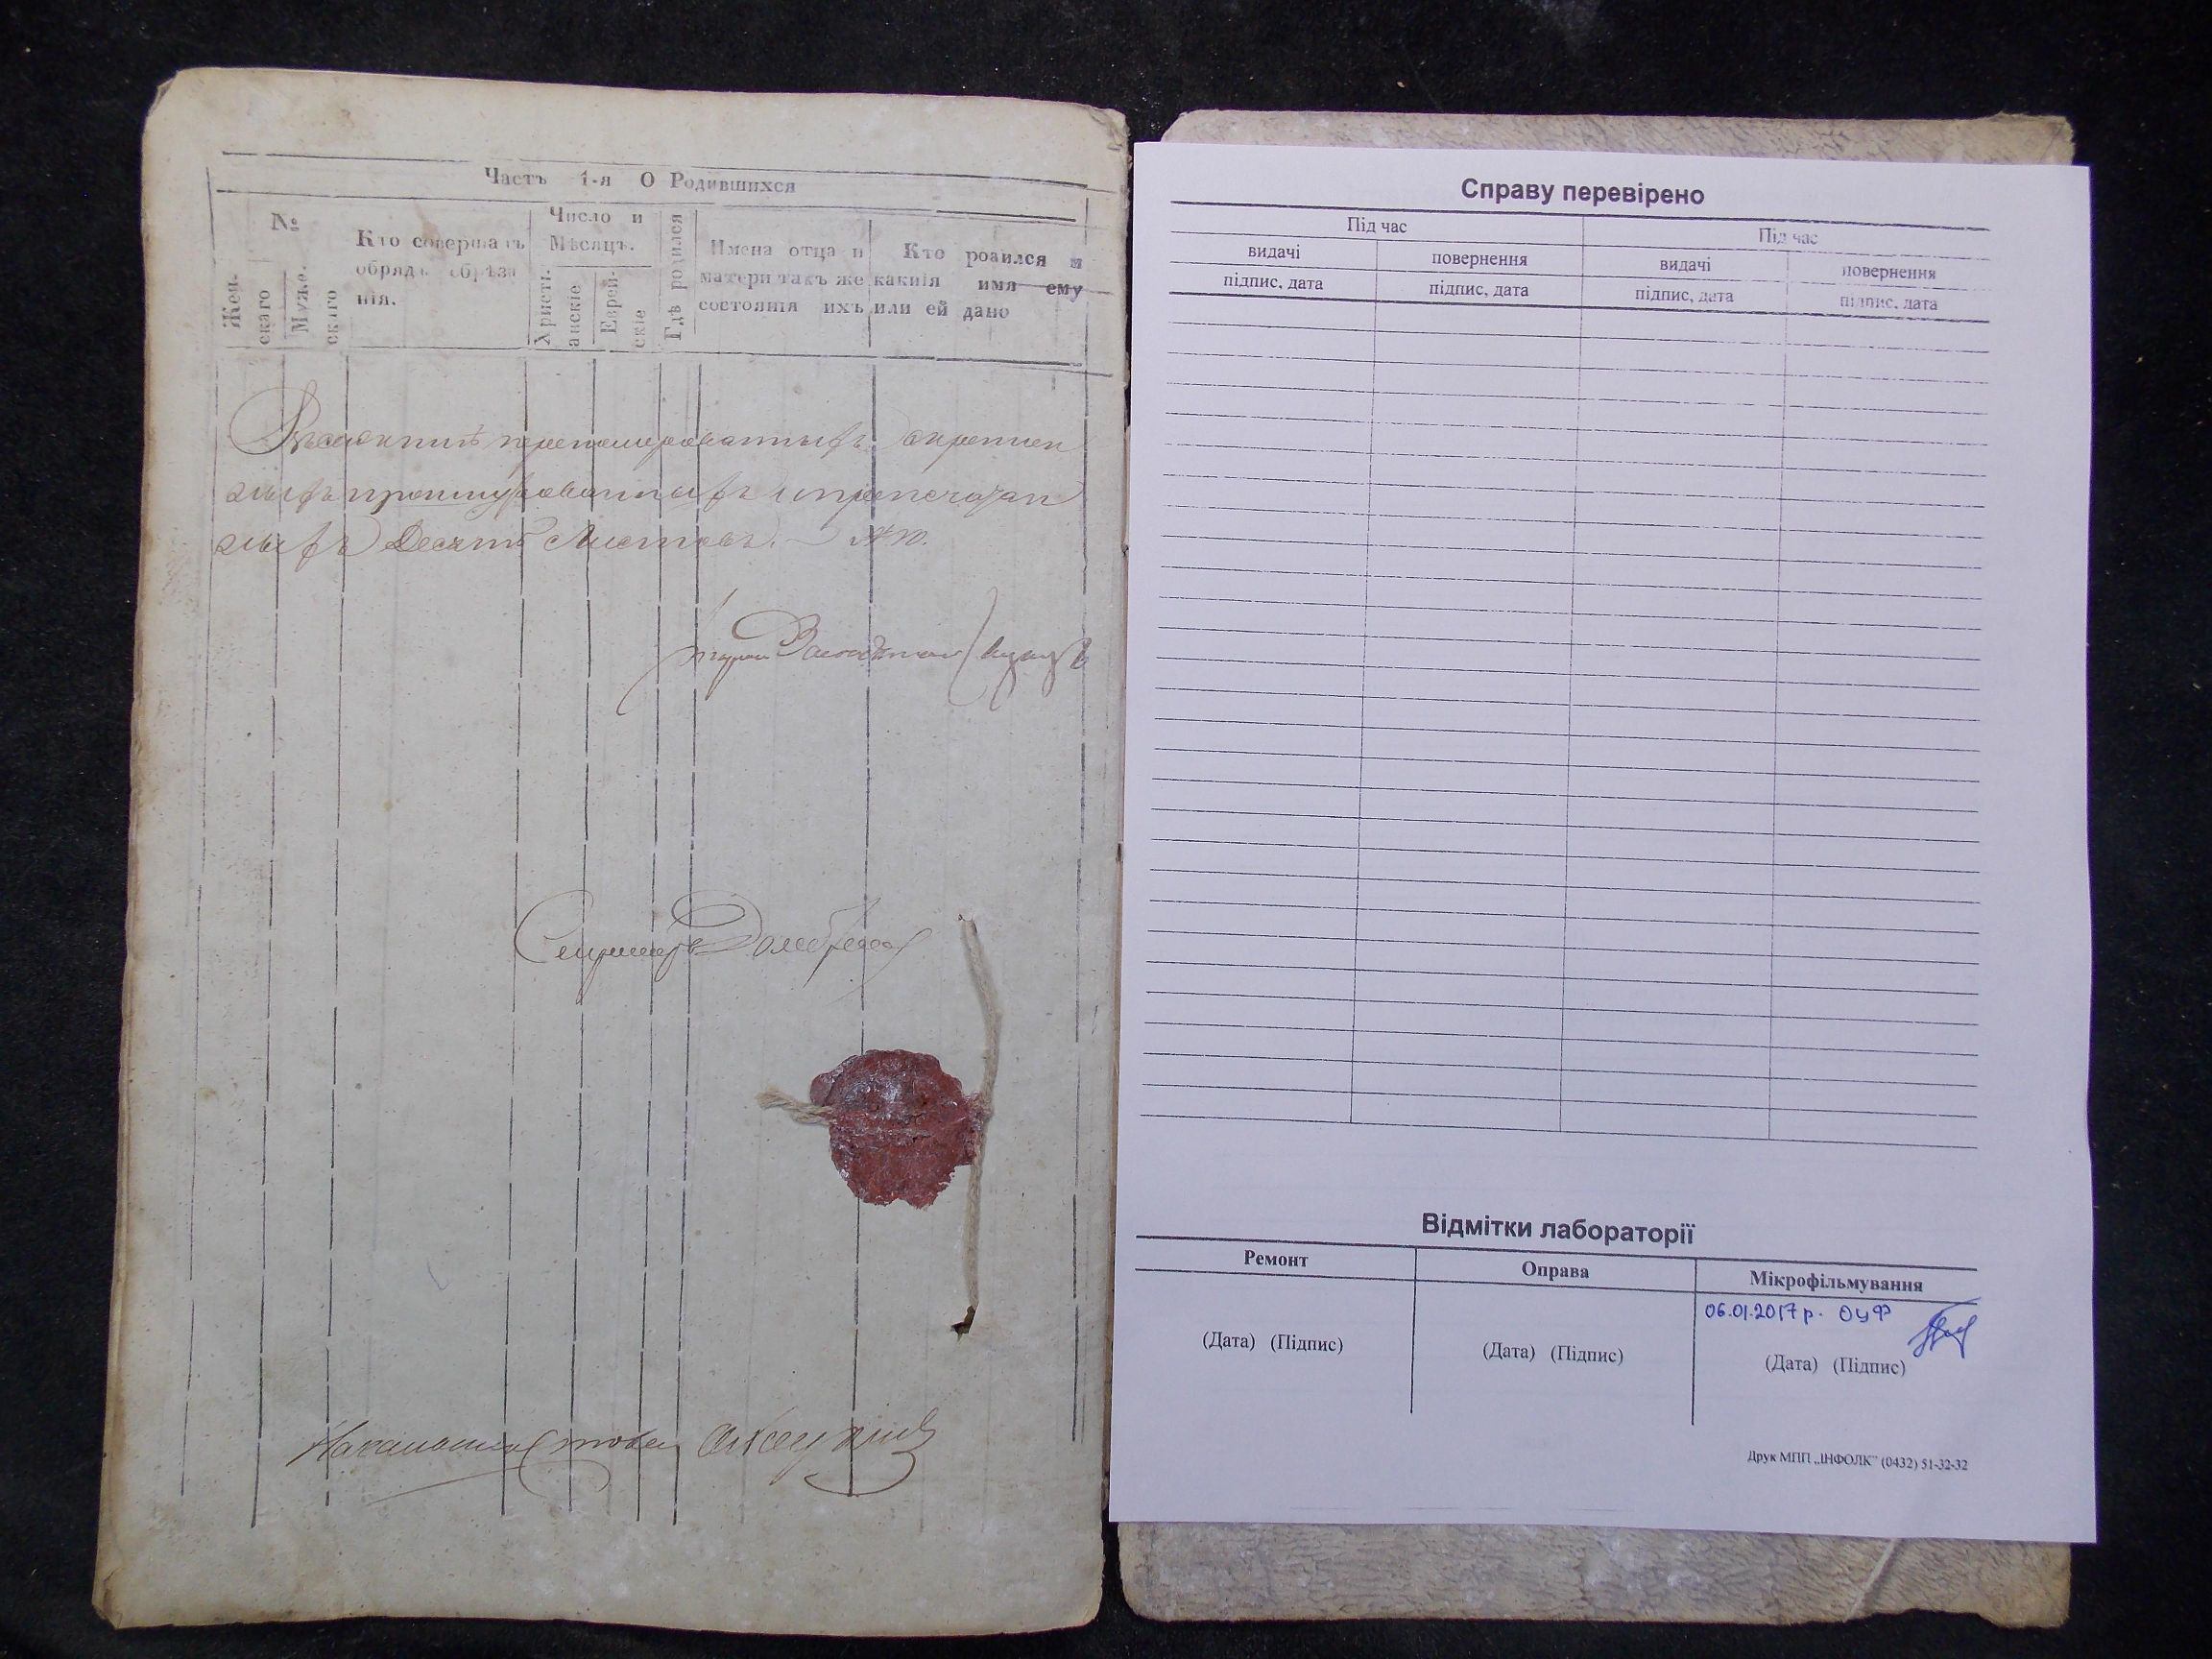 Часть 1-я О Родившихся
№
Жен-
скаго
Муже.
скаго
Кто совершалъ
обрядъ обрѣза
нія.
Число и
Мѣсяцъ.
Христі-
анскіе
Еврей-
скіе
Гдѣ родился
Имена отца и
матери такъ же какнія
состоянія ихъ
Кто родился и
имя ему
или ей дано
пронумерованныхъ скреплен
ныхъ прошнурованныхъ и припечатан
ныхъ Десять Листовъ. № 10.
Секретарь
Справу перевірено
Під час
Під час
видачі
повернення
видачі
повернення
підпис, дата
підпис, дата
підпис, дата
підпис, дата
Відмітки лабораторії
Ремонт
Оправа
Мікрофільмування
06.01.2017 р. ОЦФ
(Дата) (Підпис)
(Дата) (Підпис)
(Дата) (Підпис)
Друк МПП „ІНФОЛК" (0432) 51-32-32